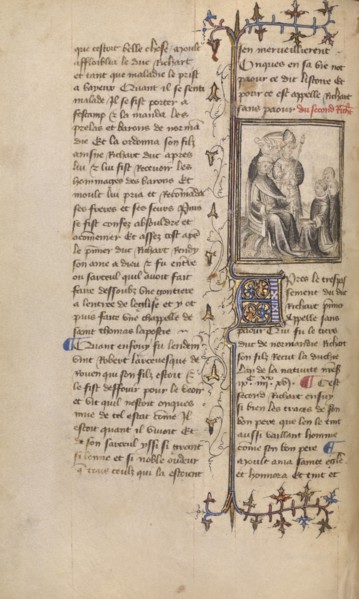 que cestoit belle chose moult
affoiblia le duc Richart
et tant que maladie le prist
a bayeux Quant il se senti
malade Il se fist porter a
fescamp et la manda les
prelas et barons de norma
die Et la ordonna son filz
ainsne Richart duc apres
lui et lui fist recevoir les
hommages des barons Et
moult lui pria et recomanda
ses freres et ses seurs Puis
se fist confes absouldre et
acomenier Et assez tost apres
le premier duc Richart rendi
son ame a dieu et fu entere
ou sarceul quil avoit fait
faire dessoubz une goutiere
a lentree de leglise et y et
puis faite une chappelle de
saint thomas lapostre
Quant enfouy fu lendem
vint Robert larcevesque de
Rouen qui son filz estoit et
le fist deffouir pour le veoir
et dit quil nestoit onques
mue de tel estat come Il
estoit quant il vivoit Et
de son sarceul yssi si grant
si bonne et si noble oudeur
que tous ceulz qui la estoient
sen merveillierent
Onques en sa vie not
paour ce dit listoire et
pour ce est appelle Richart
sans paour du second Rich
Apres le trespas
sement du duc
Richart premier
appelle sans
paour Qui fu le tiers
duc de normandie Richart
son filz recut la duchie
Lan de la nativite nostre
ix iiii xvi Cest
second Richart ensuy
si bien les traces de son
bon pere que len le tint
aussi vaillant homme
come son bon pere
Moult ama sainte eglise
et honnora Et tint et